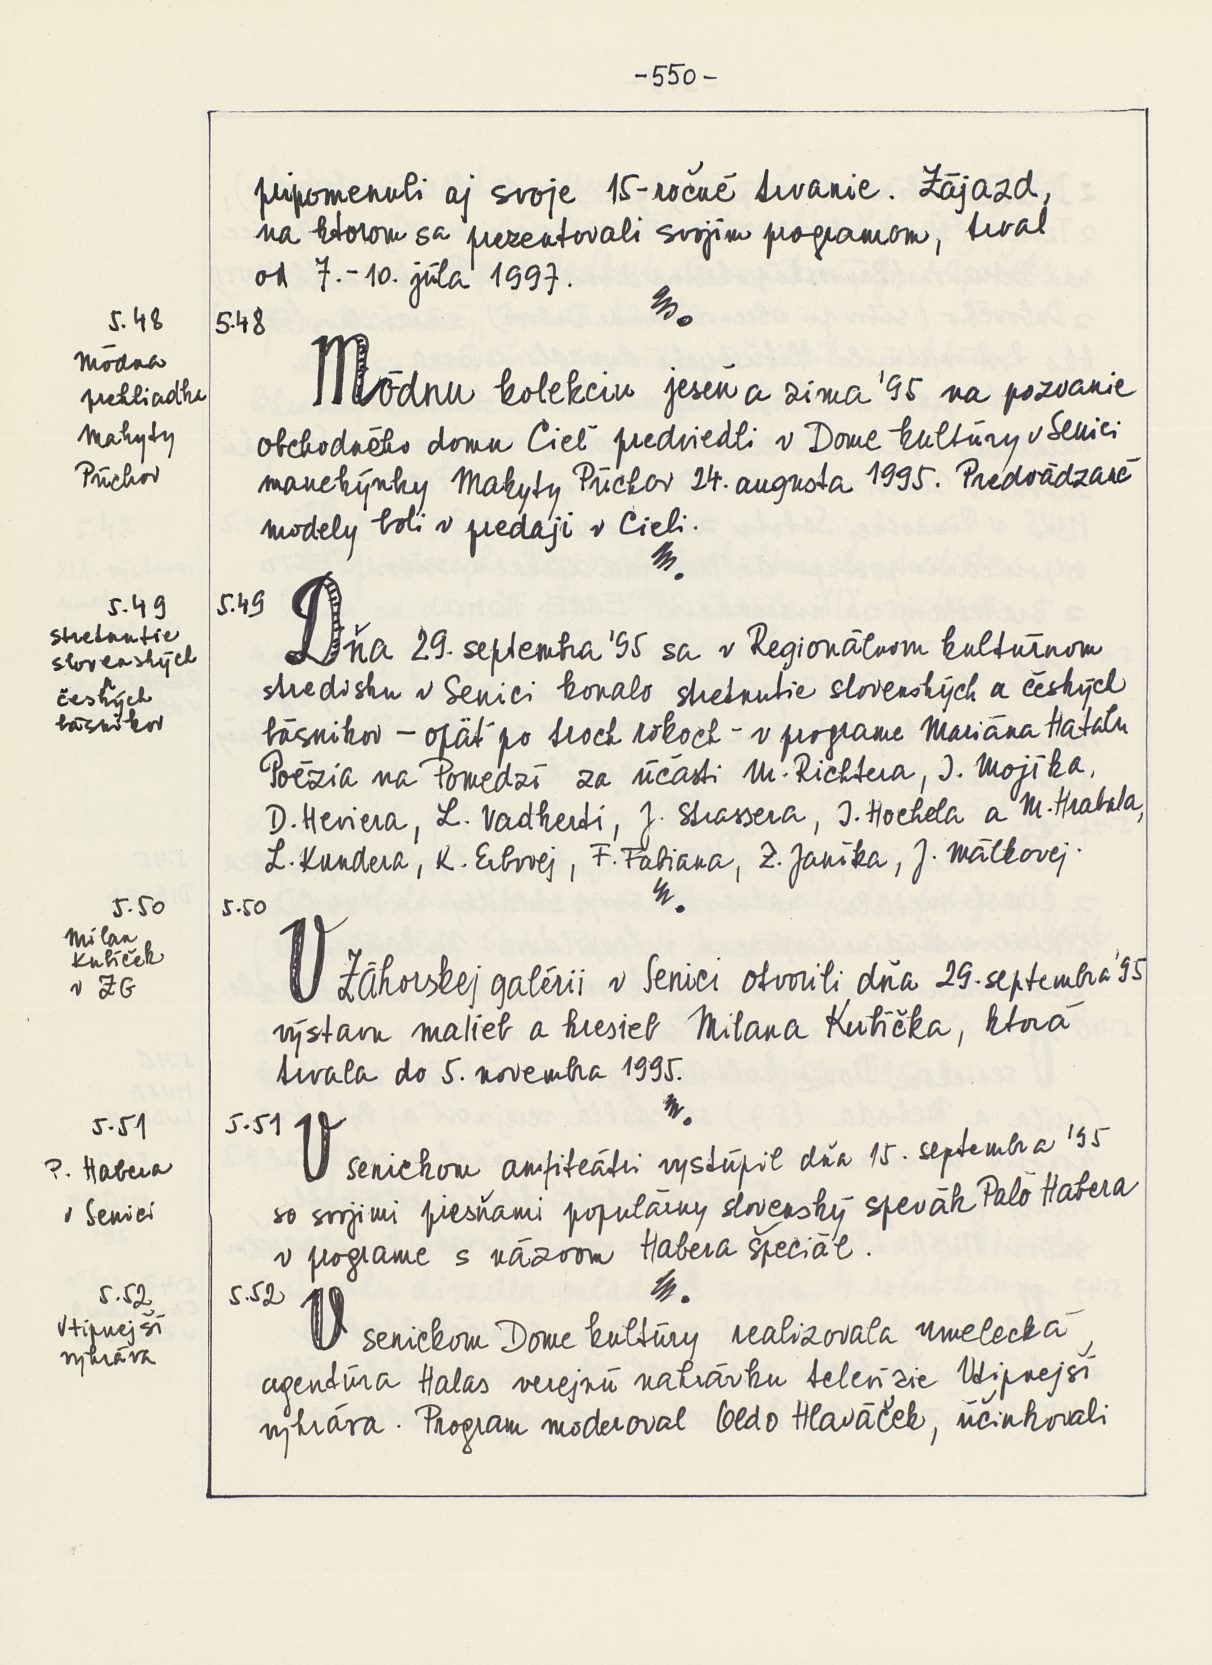 -550-
pripomenuli aj svoje 15-ročné trvanie. Zájazd,
na ktorom sa prezentovali svojím programom, trval
od 7.-10. júla 1997.
5.48
Módna
prehliadka
Makyty
Púchov
5.48
Módnu kolekciu jeseň a zima '95 na pozvanie
obchodného domu Cieľ predviedli v Dome kultúry v Senici
manekýnky Makyty Púchov 24. augusta 1995. Predvádzané
modely boli v predaji v Cieli.
5.49
stretnutie
slovenských
a
českých
básnikov
5.49
Dňa 29. septembra '95 sa v Regionálnom kultúrnom
stredisku v Senici konalo stretnutie slovenských a českých
básnikov – opäť po troch rokoch – v programe Mariána Hatalu
Poézia na Pomedzí za účasti M. Richtera, I. Mojíka,
D. Heviera, L. Vadkerti, J. Strassera, I. Hochela a M. Hrabala,
L. Kundera, K. Erbovej, F. Fabiana, Z. Janíka, J. Málkovej.
5.50
Milan
Kubíček
v ZG
5.50
V Záhorskej galérii v Senici otvorili dňa 29. septembra '95
výstavu malieb a kresieb Milana Kubíčka, ktorá
trvala do 5. novembra 1995.
5.51
P. Habera
v Senici
5.51
V senickom amfiteátri vystúpil dňa 15. septembra '95
so svojimi piesňami populárny slovenský spevák Palo Habera
v programe s názvom Habera špeciál.
5.52
Vtipnejší
vyhráva
5.52
V senickom Dome kultúry realizovala umelecká
agentúra Halas verejnú nahrávku televízie Vtipnejší
vyhráva. Program moderoval Oldo Hlaváček, účinkovali